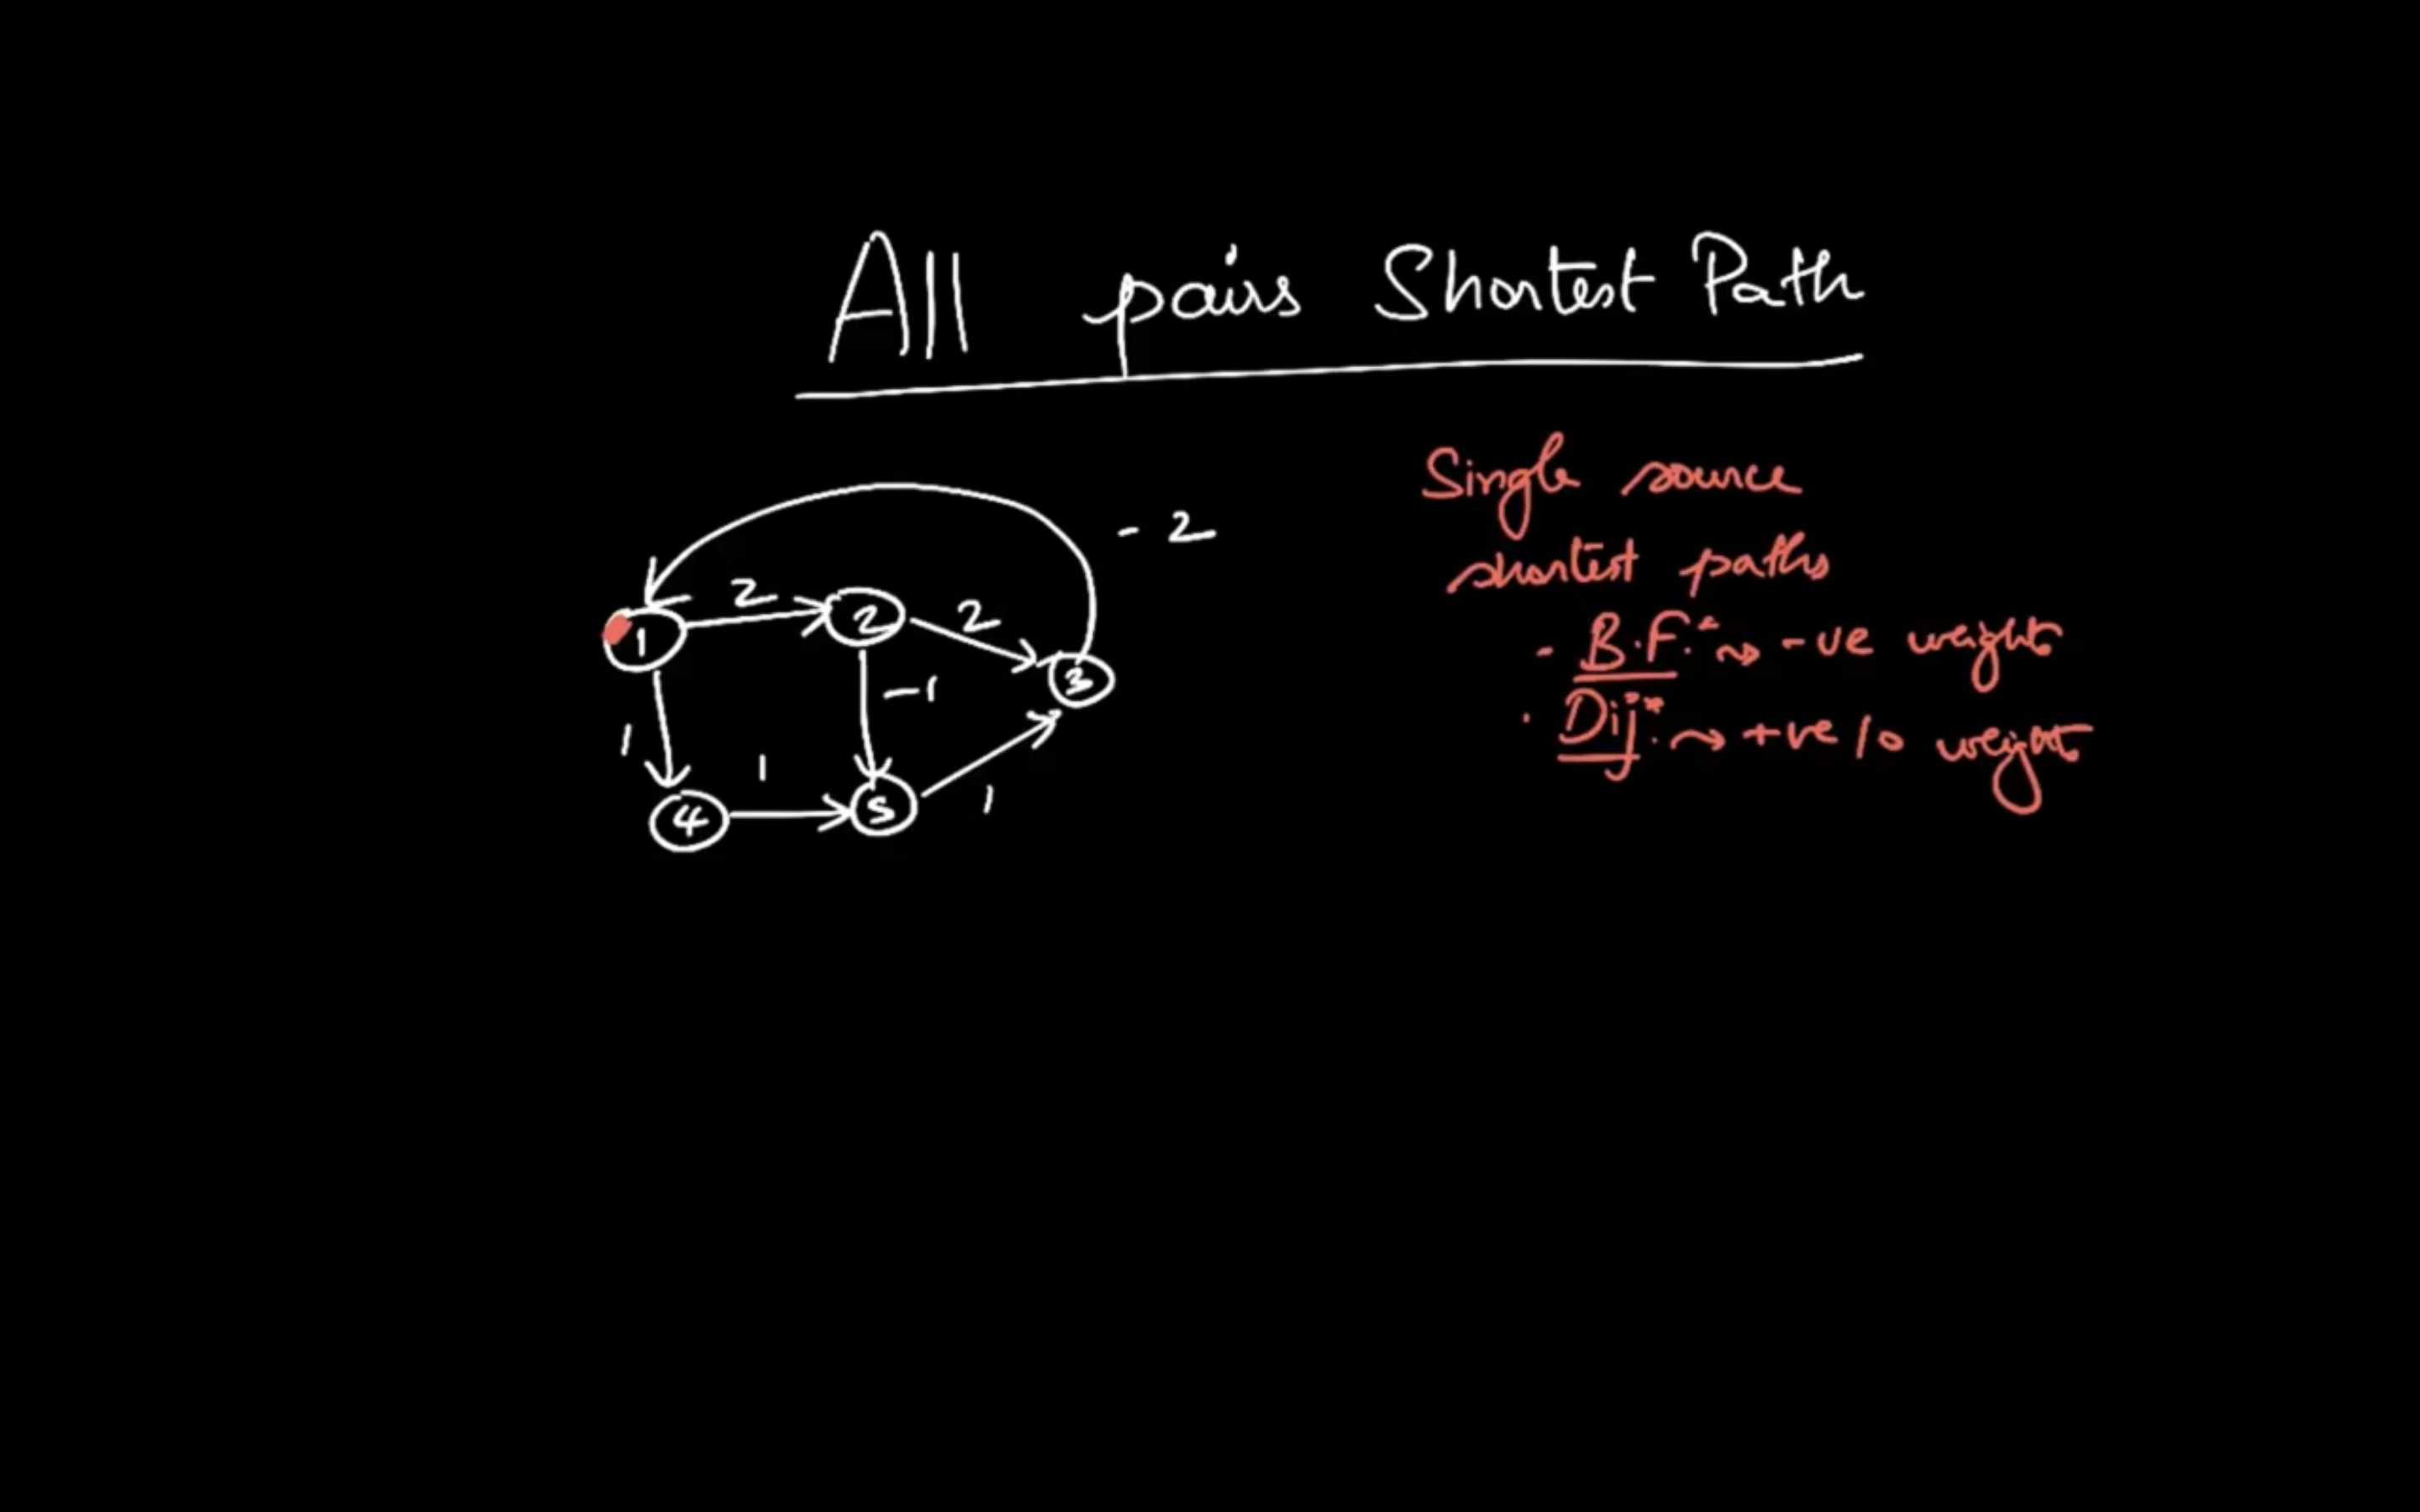 All pairs Shortest Path
- 2
2
1
2
2
3
-1
1
1
4
5
1
Single source
shortest paths
- B.F. → -ve weight
· Dij. → +ve / 0 weight